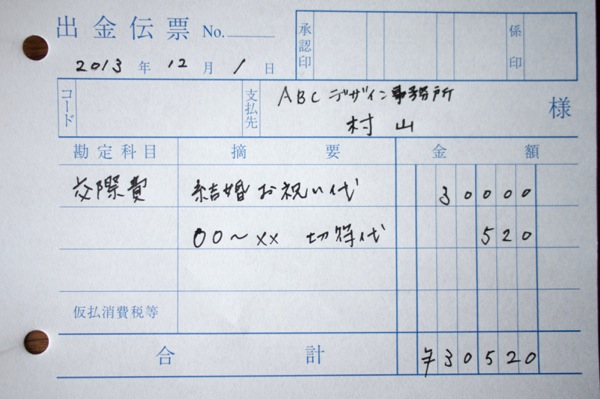 出金伝票 No.
承認印 係印
2013年12月1日
コード 支払先 ABCデザイン事務所
村山 様
勘定科目 摘要 金額
交際費 結婚お祝い代 30000
00〜xx 切符代 520
仮払消費税等
合計 ¥30520